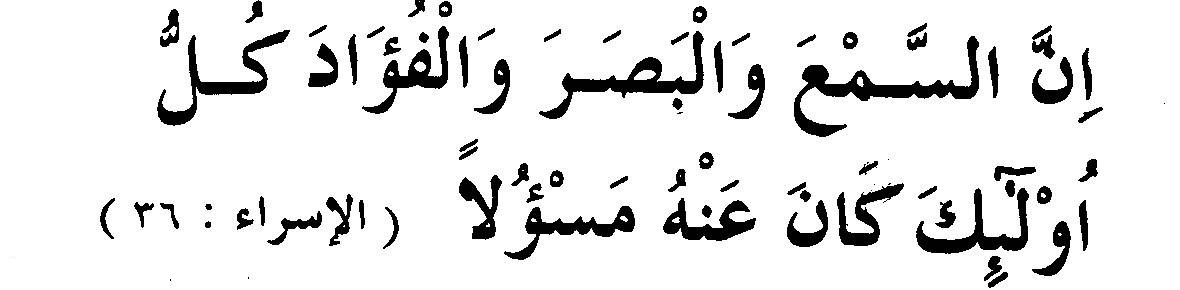 اِنَّ السَّمْعَ وَالْبَصَرَ وَالْفُؤَادَ كُلُّ
اُوْلٰٓئِكَ كَانَ عَنْهُ مَسْؤُلاً (الإسراء : ٣٦)